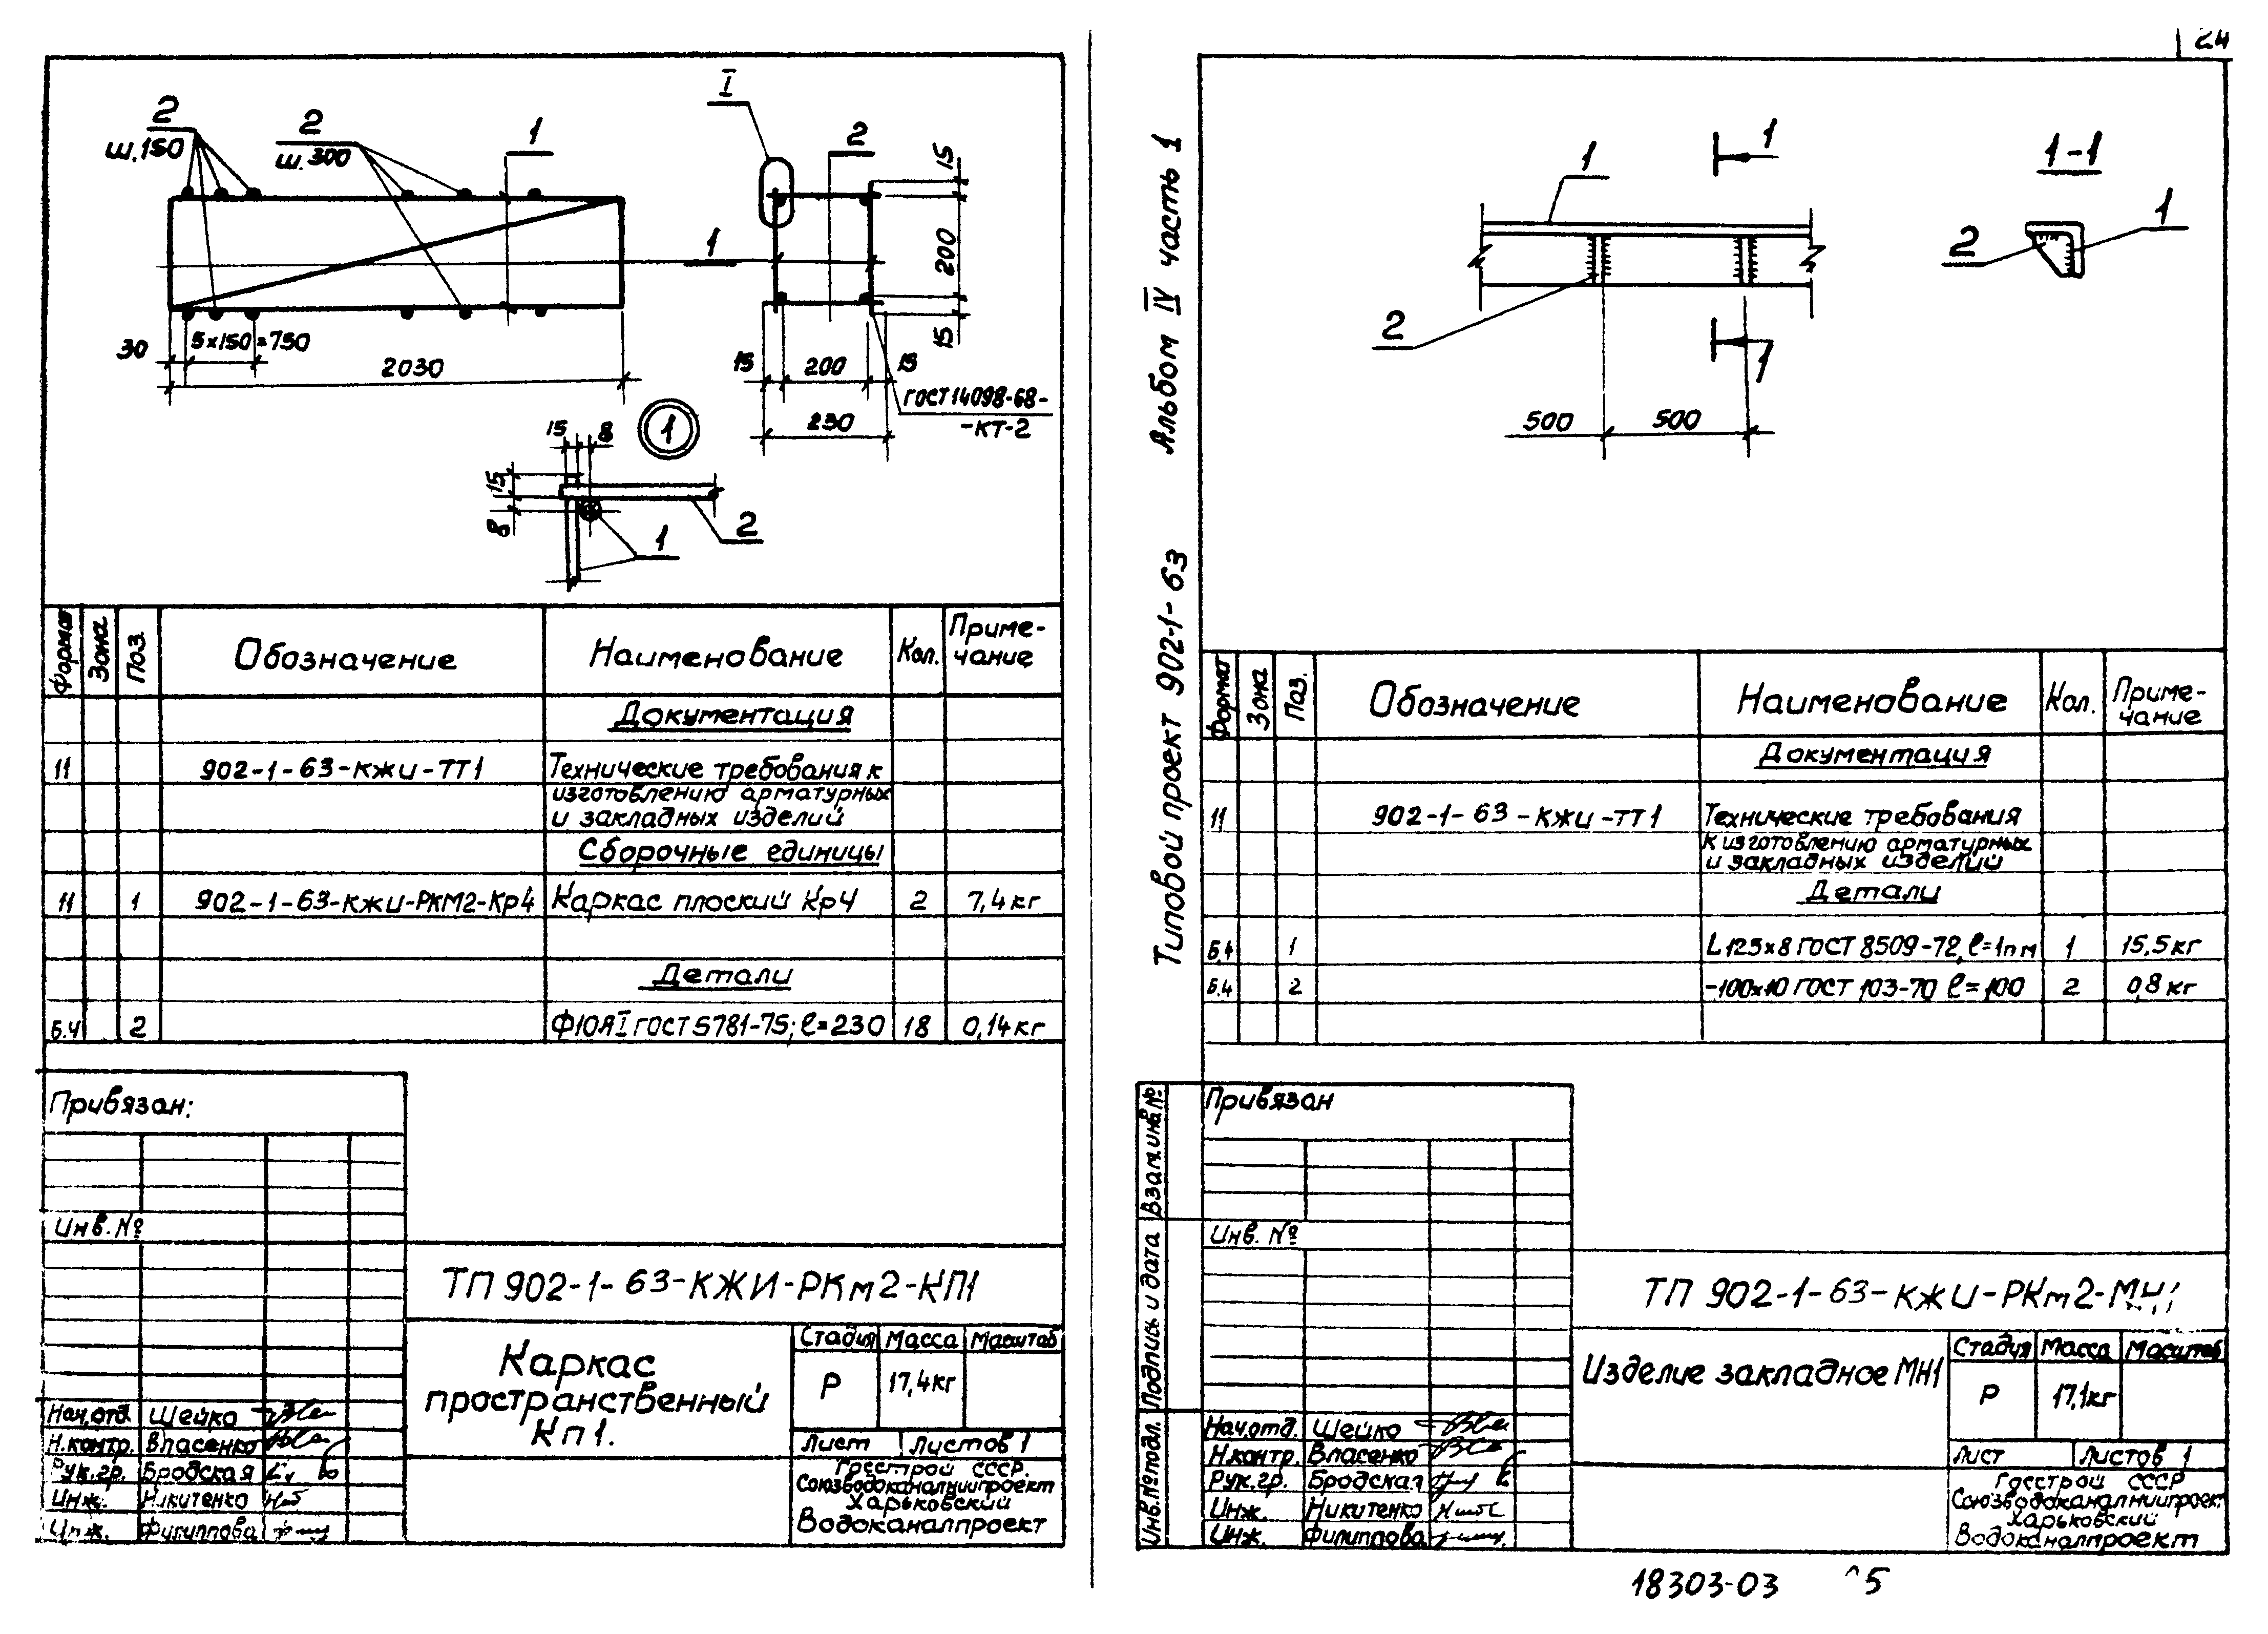 24
I
2
ш.150
2
ш.300
1
2
15
1
200
15
30
5х150=750
2030
15
200
15
230
ГОСТ14098-68-
-КТ-2
1
15
8
15
8
1
2
Формат
Зона
Поз.
Обозначение
Наименование
Кол.
Приме-
чание
Документация
11
902-1-63-КЖИ-ТТ1
Технические требования к
изготовлению арматурных
и закладных изделий
Сборочные единицы
11
1
902-1-63-КЖИ-РКМ2-Кр4
Каркас плоский Кр4
2
7,4кг
Детали
Б.Ч
2
Ф10АI ГОСТ 5781-75; ℓ=230
18
0,14кг
Привязан:
Инв.№
ТП 902-1-63-КЖИ-РКм2-КП1
Каркас
пространственный
Кп1.
Стадия
Масса
Масштаб
Р
17,4кг
Лист
Листов 1
Госстрой СССР.
Союзводоканалниипроект
Харьковский
Водоканалпроект
Нач.отд.
Шейко
Н.контр.
Власенко
Рук.гр.
Бродская
Инж.
Никитенко
Инж.
Филиппова
Альбом IV часть 1
Типовой проект 902-1-63
1
1
1-1
1
2
2
1
500
500
Формат
Зона
Поз.
Обозначение
Наименование
Кол.
Приме-
чание
Документация
11
902-1-63-КЖИ-ТТ1
Технические требования
к изготовлению арматурных
и закладных изделий
Детали
Б.Ч
1
L125х8 ГОСТ 8509-72, ℓ=1пм
1
15,5кг
Б.Ч
2
-100х10 ГОСТ 103-70 ℓ=100
2
0,8кг
Взам.инв.№
Подпись и дата
Инв.№подл.
Привязан
Инв. №
ТП 902-1-63-КЖИ-РКм2-МН1
Изделие закладное МН1
Стадия
Масса
Масштаб
Р
17,1кг
Лист
Листов 1
Госстрой СССР
Союзводоканалниипроект
Харьковский
Водоканалпроект
Нач.отд.
Шейко
Н.контр.
Власенко
Рук.гр.
Бродская
Инж.
Никитенко
Инж.
Филиппова
18303-03
5